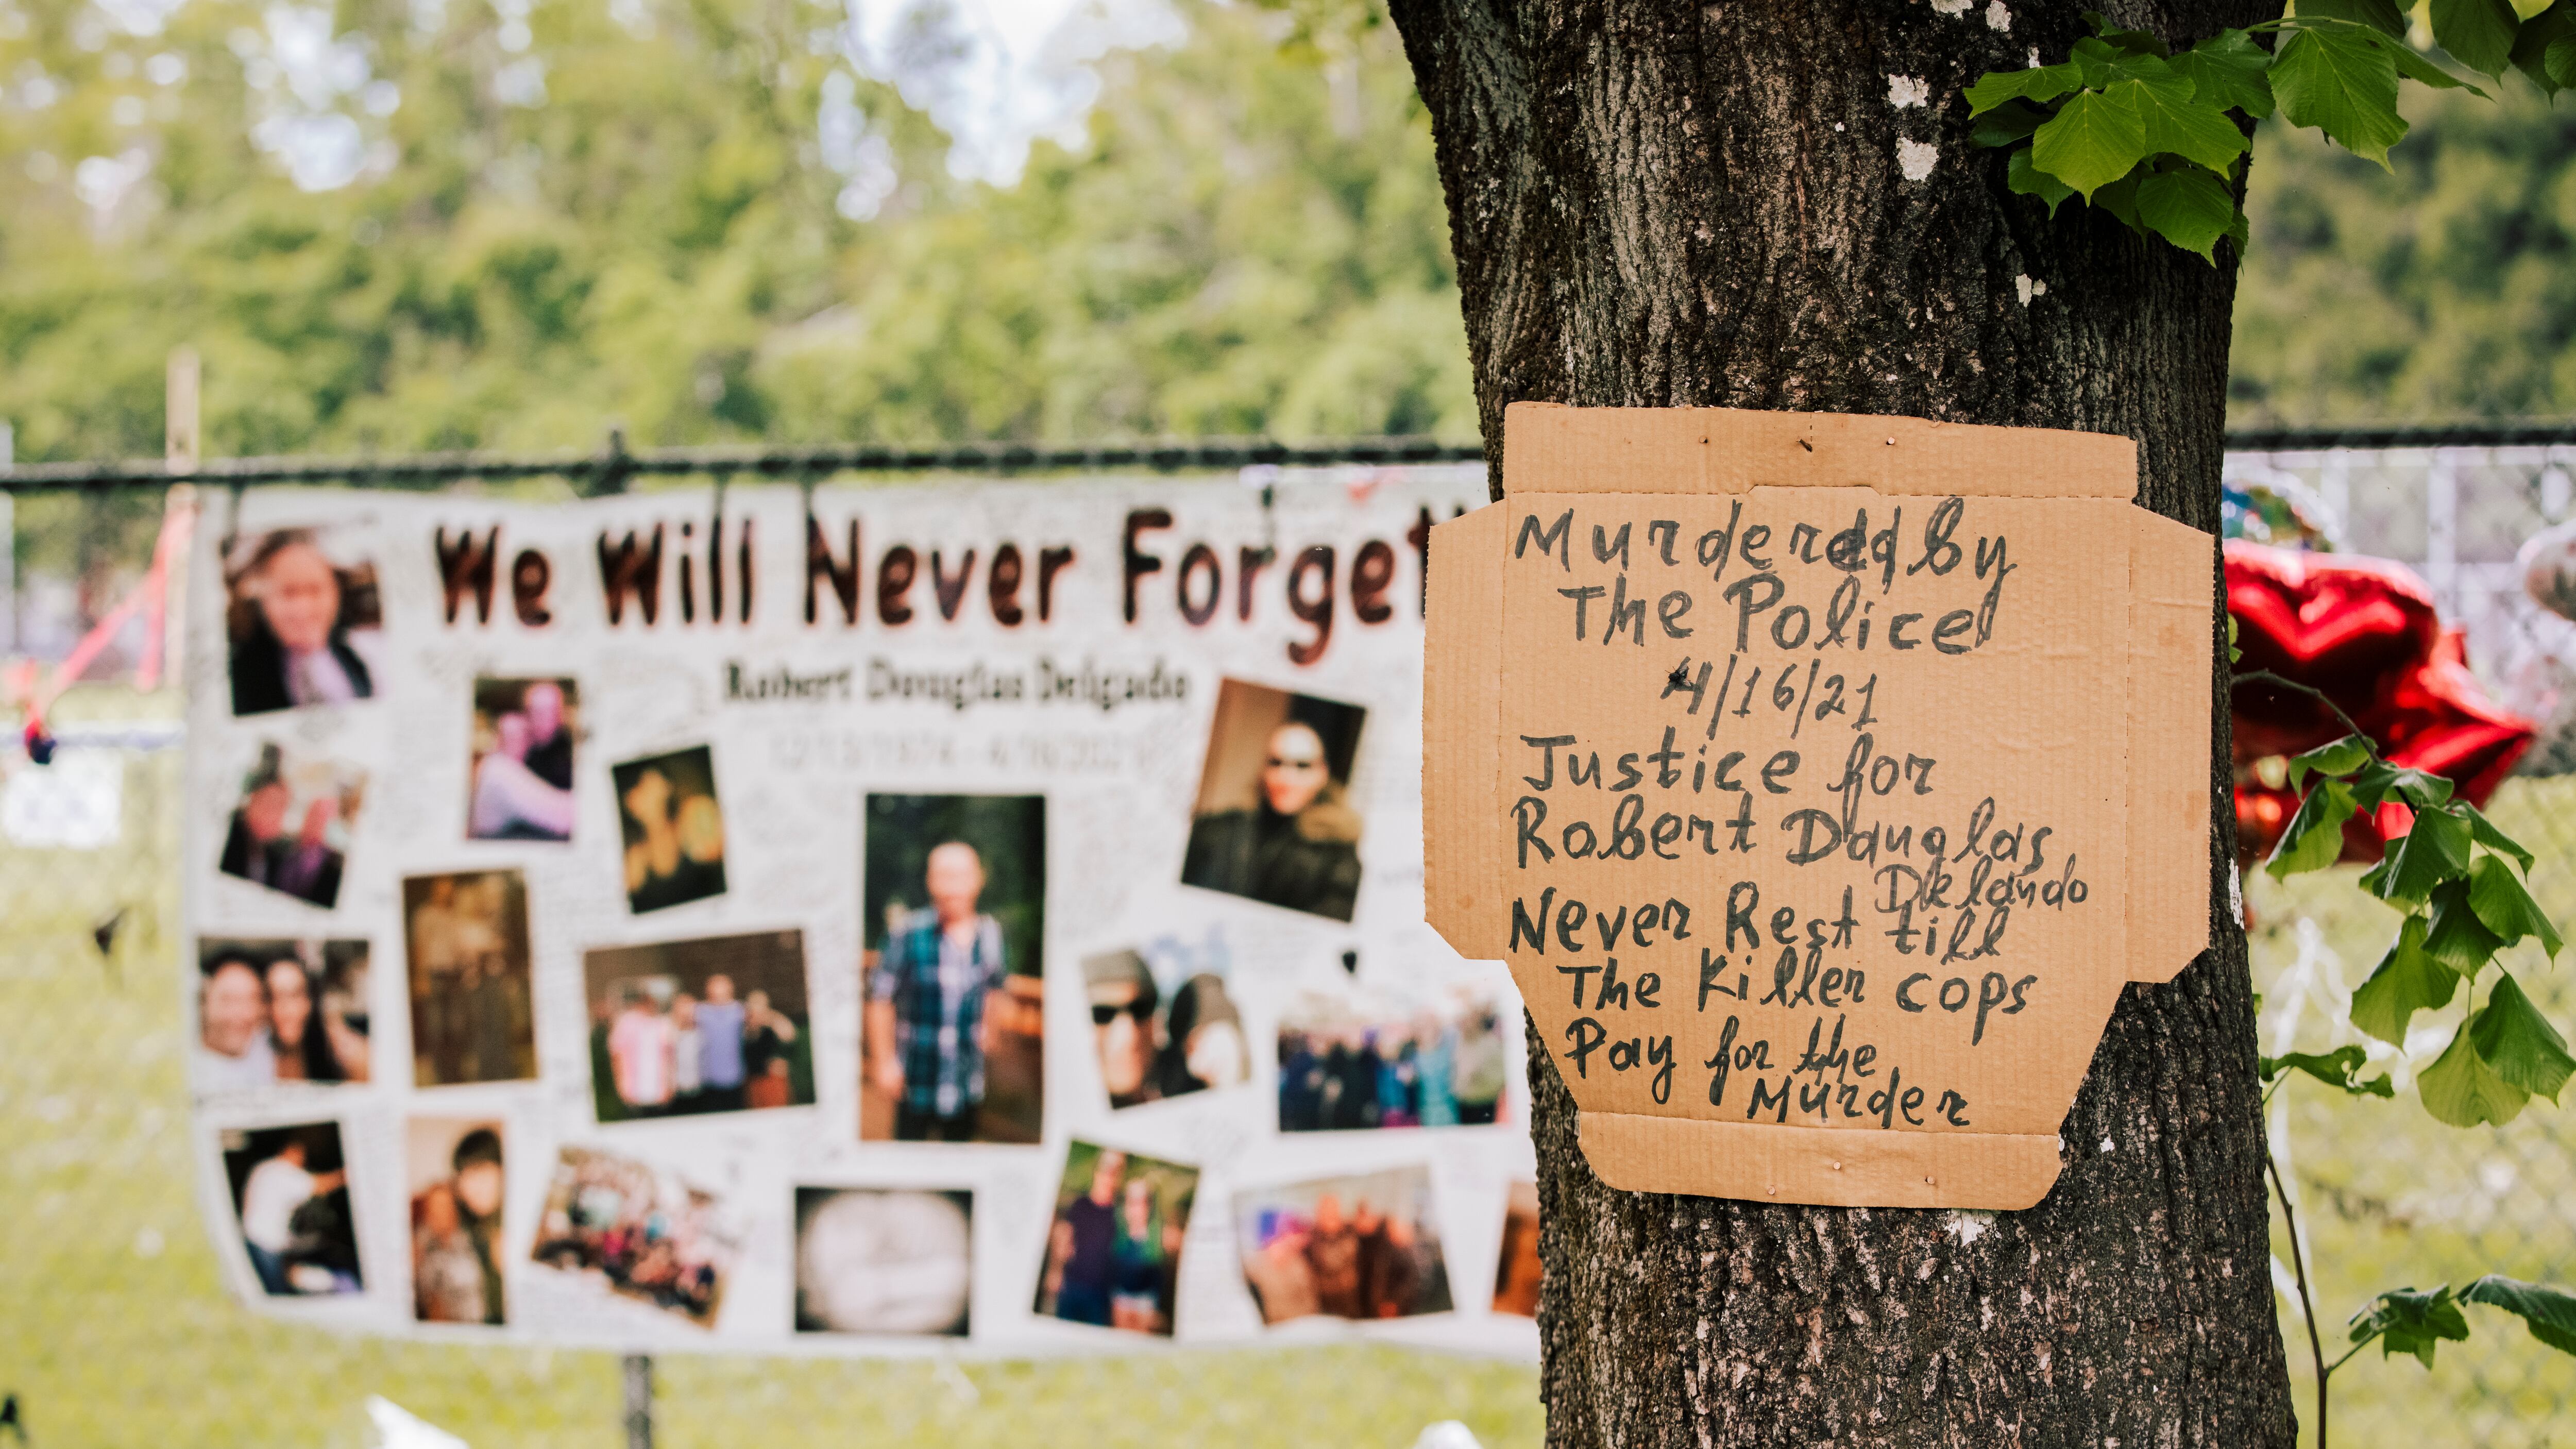 We Will Never Forget
Robert Douglas Delgado
12/13/1974 - 4/16/2021
Murdered by
The Police
4/16/21
Justice for
Robert Dauglas
Delando
Never Rest till
The Killer cops
Pay for the
Murder